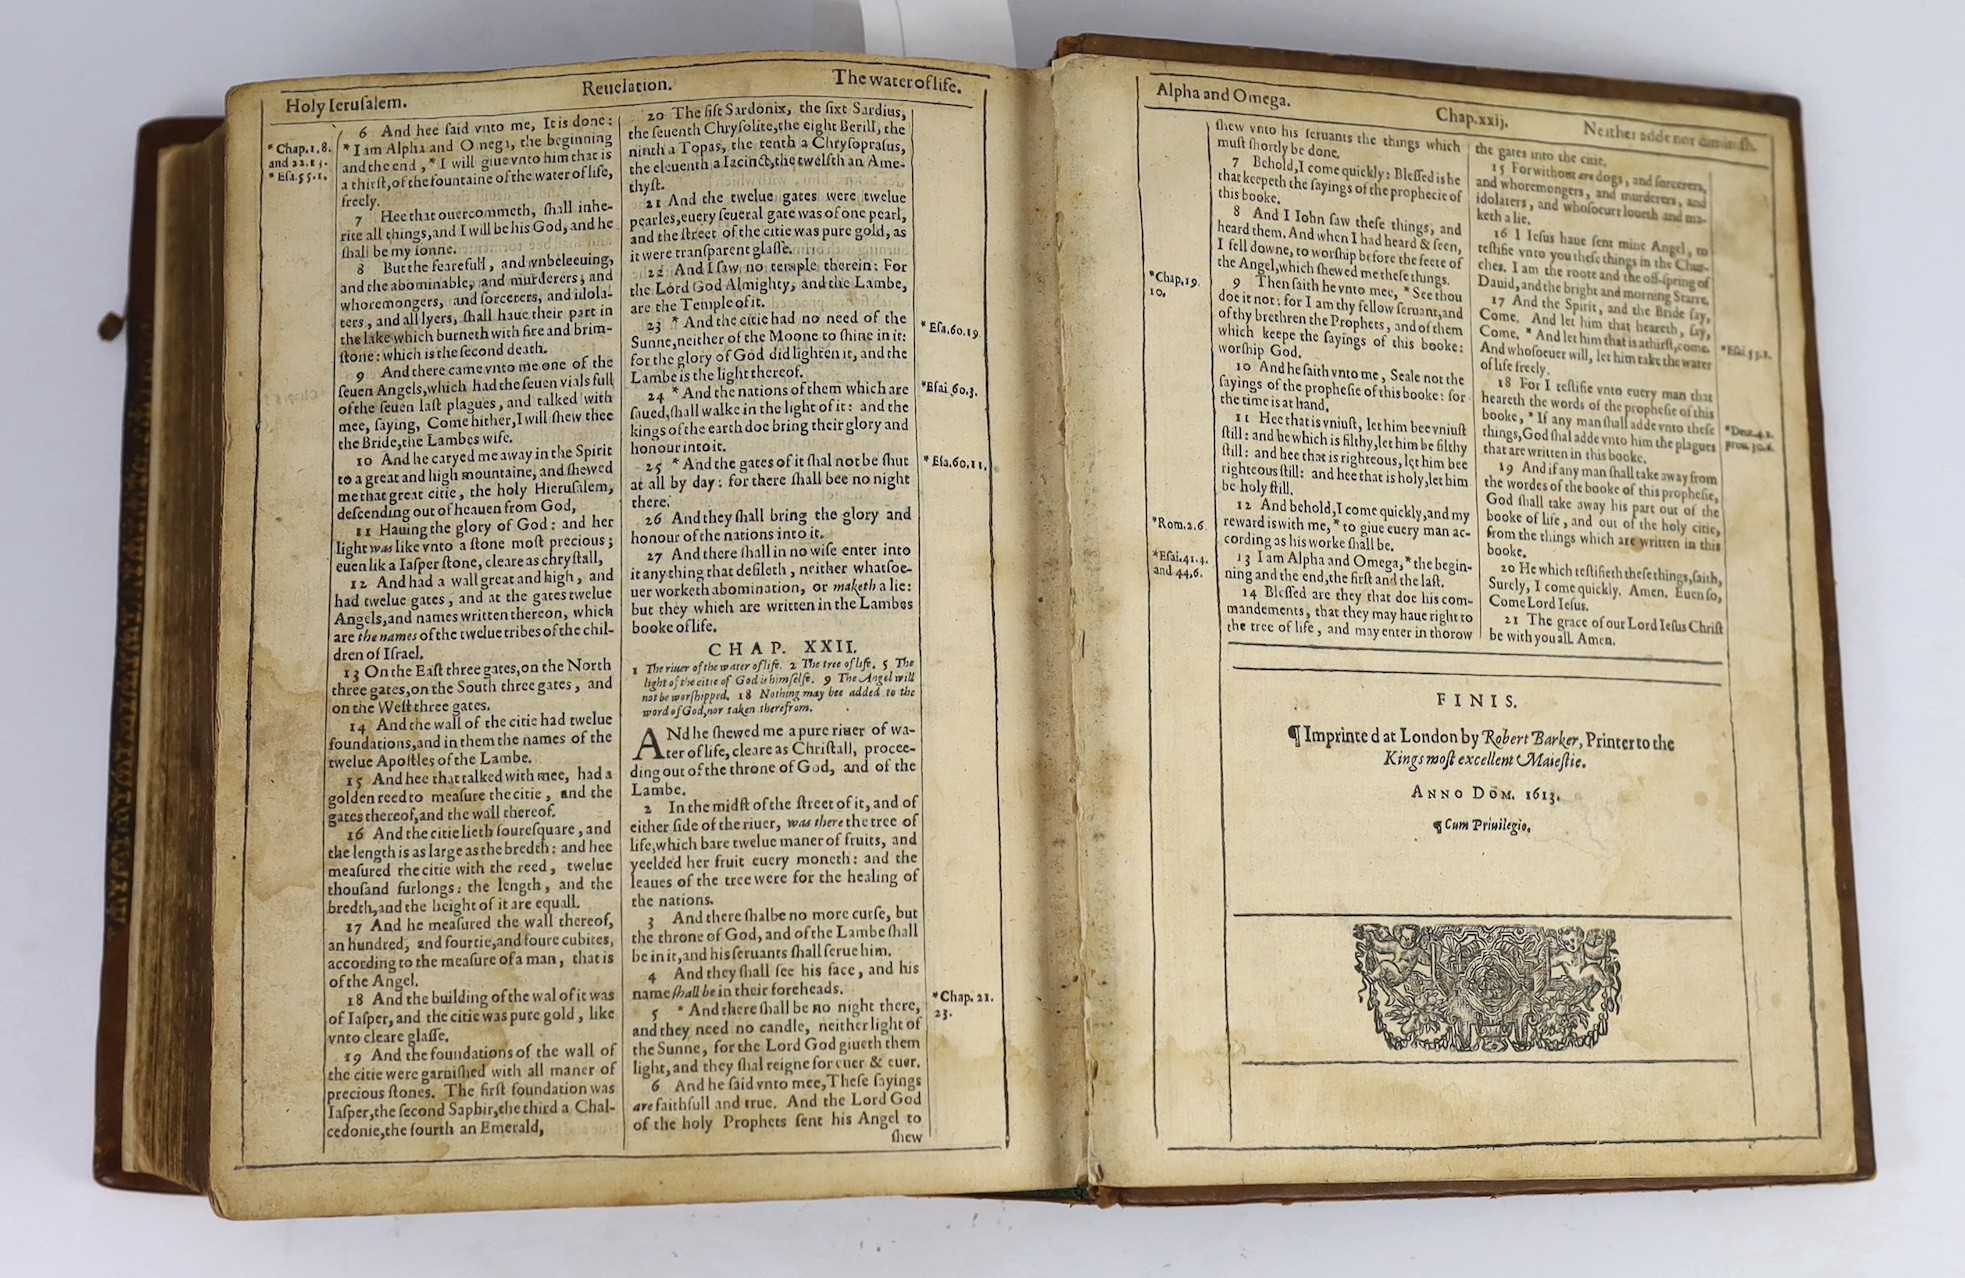 Holy Ieruſalem.
Reuelation.
The water of life.
*Chap.1.8.
and 22.13.
*Eſa.55.1.
6 And hee ſaid vnto me, It is done:
*I am Alpha and Omega, the beginning
and the end, * I will giue vnto him that is
a thirſt, of the fountaine of the water of life,
freely.
7 Hee that ouercommeth, ſhall inhe-
rite all things, and I will be his God, and he
ſhall be my ſonne.
8 But the fearefull, and vnbeleeuing,
and the abominable, and murderers, and
whoremongers, and ſorcerers, and idola-
ters, and all lyers, ſhall haue their part in
the lake which burneth with fire and brim-
ſtone: which is the ſecond death.
9 And there came vnto me one of the
ſeuen Angels, which had the ſeuen vials full
of the ſeuen laſt plagues, and talked with
mee, ſaying, Come hither, I will ſhew thee
the Bride, the Lambes wife.
10 And he caryed me away in the Spirit
to a great and high mountaine, and ſhewed
me that great citie, the holy Hieruſalem,
deſcending out of heauen from God,
11 Hauing the glory of God: and her
light was like vnto a ſtone moſt precious;
euen lik a Iaſper ſtone, cleare as chryſtall,
12 And had a wall great and high, and
had twelue gates, and at the gates twelue
Angels, and names written thereon, which
are the names of the twelue tribes of the chil-
dren of Iſrael.
13 On the Eaſt three gates, on the North
three gates, on the South three gates, and
on the Weſt three gates.
14 And the wall of the citie had twelue
foundations, and in them the names of the
twelue Apoſtles of the Lambe.
15 And hee that talked with mee, had a
golden reed to meaſure the citie, and the
gates thereof, and the wall thereof.
16 And the citie lieth foureſquare, and
the length is as large as the bredth: and hee
meaſured the citie with the reed, twelue
thouſand furlongs: the length, and the
bredth, and the height of it are equall.
17 And he meaſured the wall thereof,
an hundred, and fourtie, and foure cubites,
according to the meaſure of a man, that is
of the Angel.
18 And the building of the wal of it was
of Iaſper, and the citie was pure gold, like
vnto cleare glaſſe.
19 And the foundations of the wall of
the citie were garniſhed with all maner of
precious ſtones. The firſt foundation was
Iaſper, the ſecond Saphir, the third a Chal-
cedonie, the fourth an Emerald,
20 The fift Sardonix, the ſixt Sardius,
the ſeuenth Chryſolite, the eight Berill, the
ninth a Topas, the tenth a Chryſopraſus,
the eleuenth a Iacinct, the twelfth an Ame-
thyſt.
21 And the twelue gates were twelue
pearles, euery ſeueral gate was of one pearl,
and the ſtreet of the citie was pure gold, as
it were tranſparent glaſſe.
22 And I ſaw no temple therein: For
the Lord God Almighty, and the Lambe,
are the Temple of it.
23 * And the citie had no need of the
Sunne, neither of the Moone to ſhine in it:
for the glory of God did lighten it, and the
Lambe is the light thereof.
24 * And the nations of them which are
ſaued, ſhall walke in the light of it: and the
kings of the earth doe bring their glory and
honour into it.
25 * And the gates of it ſhal not be ſhut
at all by day: for there ſhall bee no night
there.
26 And they ſhall bring the glory and
honour of the nations into it.
27 And there ſhall in no wiſe enter into
it any thing that defileth, neither whatſoe-
uer worketh abomination, or maketh a lie:
but they which are written in the Lambes
booke of life.
CHAP. XXII.
1 The riuer of the water of life. 2 The tree of life. 5 The
light of the citie of God is himſelfe. 9 The Angel will
not be worſhipped. 18 Nothing may bee added to the
word of God, nor taken therefrom.
ANd he ſhewed me a pure riuer of wa-
ter of life, cleare as Chriſtall, procee-
ding out of the throne of God, and of the
Lambe.
2 In the midſt of the ſtreet of it, and of
either ſide of the riuer, was there the tree of
life, which bare twelue maner of fruits, and
yeelded her fruit euery moneth: and the
leaues of the tree were for the healing of
the nations.
3 And there ſhalbe no more curſe, but
the throne of God, and of the Lambe ſhall
be in it, and his ſeruants ſhall ſerue him.
4 And they ſhall ſee his face, and his
name ſhall be in their foreheads.
5 * And there ſhall be no night there,
and they need no candle, neither light of
the Sunne, for the Lord God giueth them
light, and they ſhal reigne for euer & euer.
6 And he ſaid vnto mee, Theſe ſayings
are faithfull and true. And the Lord God
of the holy Prophets ſent his Angel to
ſhew
* Eſa.60.19
*Eſai 60.3.
* Eſa.60.11.
*Chap. 21.
23.
Alpha and Omega.
Chap.xxij.
Neither adde nor diminiſh.
*Chap.19.
10.
*Rom.2.6.
*Eſai.41.4.
and 44,6.
ſhew vnto his ſeruants the things which
muſt ſhortly be done.
7 Behold, I come quickly: Bleſſed is he
that keepeth the ſayings of the prophecie of
this booke.
8 And I Iohn ſaw theſe things, and
heard them. And when I had heard & ſeen,
I fell downe, to worſhip before the feete of
the Angel, which ſhewed me theſe things.
9 Then ſaith he vnto mee, * See thou
doe it not: for I am thy fellow ſeruant, and
of thy brethren the Prophets, and of them
which keepe the ſayings of this booke:
worſhip God.
10 And he ſaith vnto me, Seale not the
ſayings of the propheſie of this booke: for
the time is at hand.
11 Hee that is vniuſt, let him bee vniuſt
ſtill: and he which is filthy, let him be filthy
ſtill: and hee that is righteous, let him bee
righteous ſtill: and hee that is holy, let him
be holy ſtill.
12 And behold, I come quickly, and my
reward is with me, * to giue euery man ac-
cording as his worke ſhall be.
13 I am Alpha and Omega, * the begin-
ning and the end, the firſt and the laſt.
14 Bleſſed are they that doe his com-
mandements, that they may haue right to
the tree of life, and may enter in thorow
the gates into the citie.
15 For without are dogs, and ſorcerers,
and whoremongers, and murderers, and
idolaters, and whoſoeuer loueth and ma-
keth a lie.
16 I Ieſus haue ſent mine Angel, to
teſtifie vnto you theſe things in the Chur-
ches. I am the roote and the off-ſpring of
Dauid, and the bright and morning Starre.
17 And the Spirit, and the Bride ſay,
Come. And let him that heareth, ſay,
Come. * And let him that is athirſt, come.
And whoſoeuer will, let him take the water
of life freely.
18 For I teſtifie vnto euery man that
heareth the words of the propheſie of this
booke, * If any man ſhall adde vnto theſe
things, God ſhal adde vnto him the plagues
that are written in this booke.
19 And if any man ſhall take away from
the wordes of the booke of this propheſie,
God ſhall take away his part out of the
booke of life, and out of the holy citie,
from the things which are written in this
booke.
20 He which teſtifieth theſe things, ſaith,
Surely, I come quickly. Amen. Euen ſo,
Come Lord Ieſus.
21 The grace of our Lord Ieſus Chriſt
be with you all. Amen.
*Eſai.55.1.
*Deut.4.2.
prou.30.6.
FINIS.
¶ Imprinted at London by Robert Barker, Printer to the
Kings moſt excellent Maieſtie.
ANNO DOM. 1613.
¶ Cum Priuilegio.